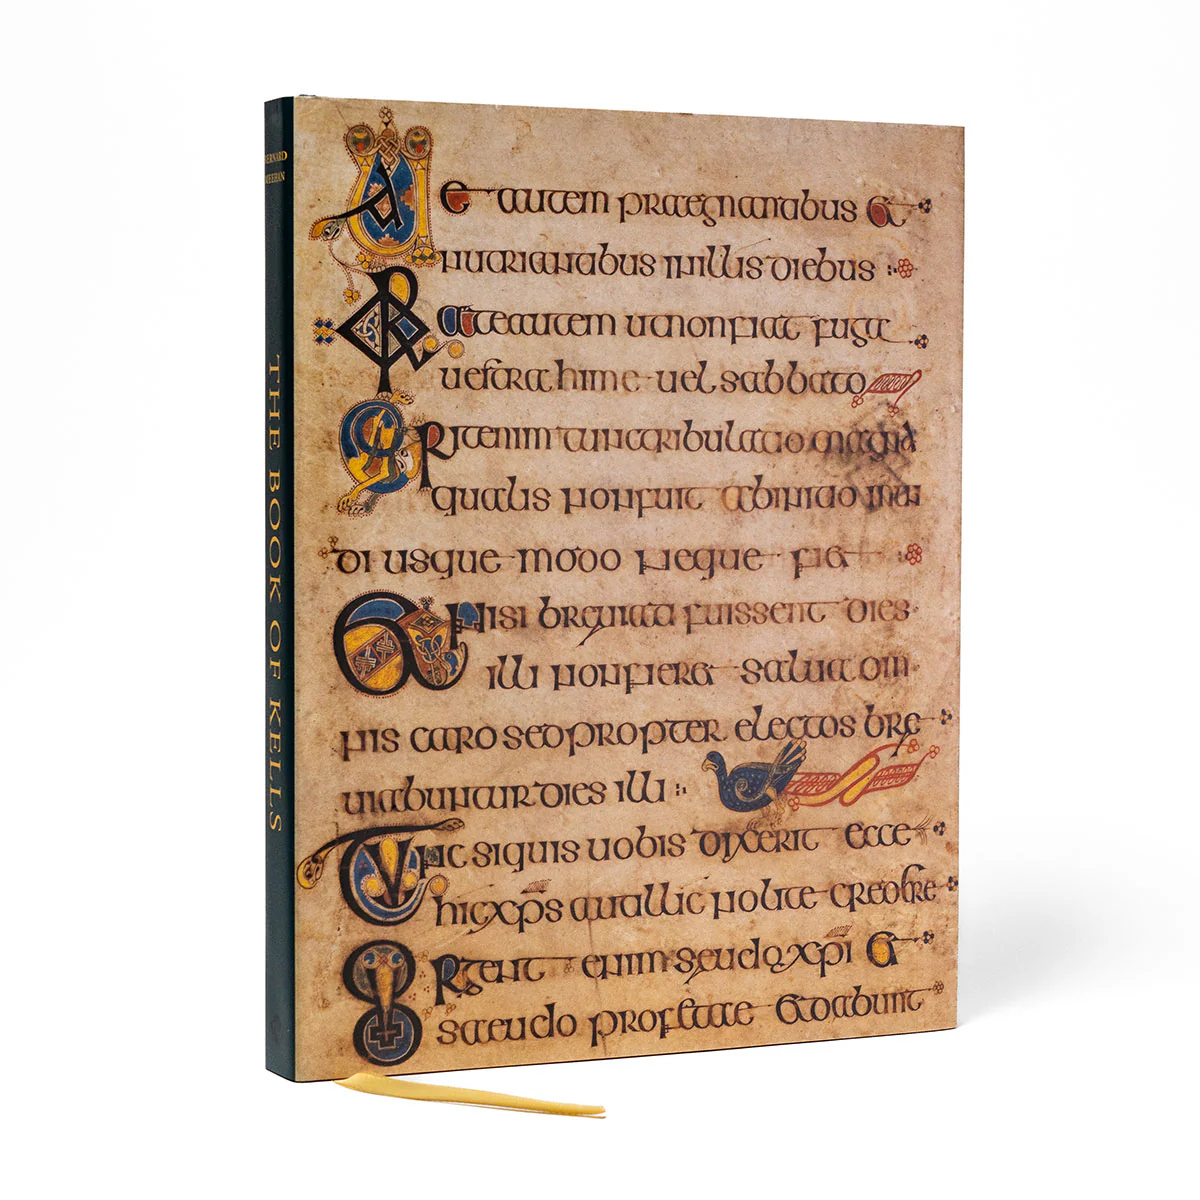 BERNARD
MEEHAN
THE BOOK OF KELLS
Uae autem praegnantibus et
nutrientibus in illis diebus
Orate autem ut non fiat fuga
uestra hime uel sabbato
Erit enim tunc tribulatio magna
qualis non fuit ab initio mun
di usque modo neque fiet
Et nisi breuiati fuissent dies
illi non fieret salua om
nis caro sed propter electos bre
uiabuntur dies illi
Tunc si quis uobis dixerit ecce
hic xps aut illic nolite credere
Surgent enim seudo xpi et
saeudo profetae et dabunt